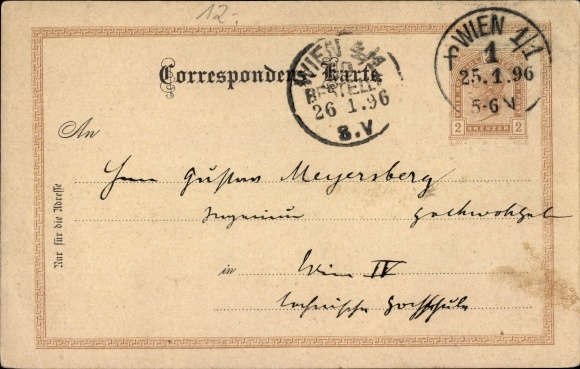 12.
WIEN 1/1
1
25.1.96
5-6 N
WIEN
BESTELLT
26 1.96
8.V
Correspondenz-Karte
2 KREUZER 2
An
Herrn Gustav Meyersberg
Ingenieur Hochwohlgeb
in Wien IV
technische Hochschule
Nur für die Adresse